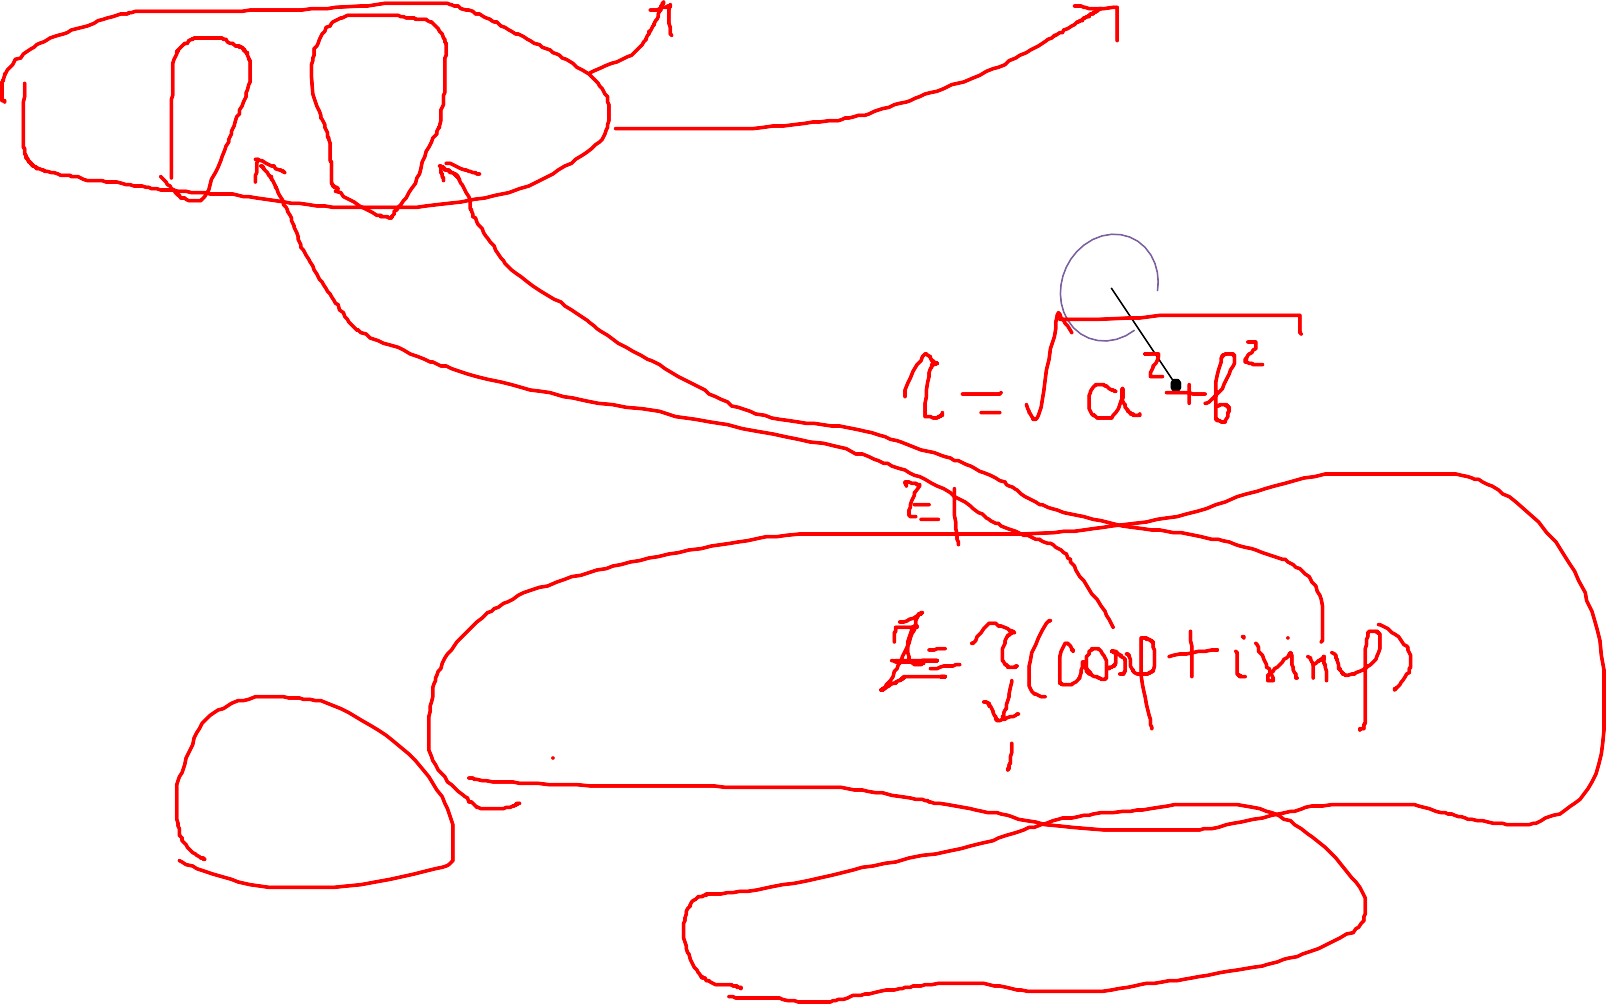 r = √a²+b²
z =
z = r (cosφ + i sinφ)